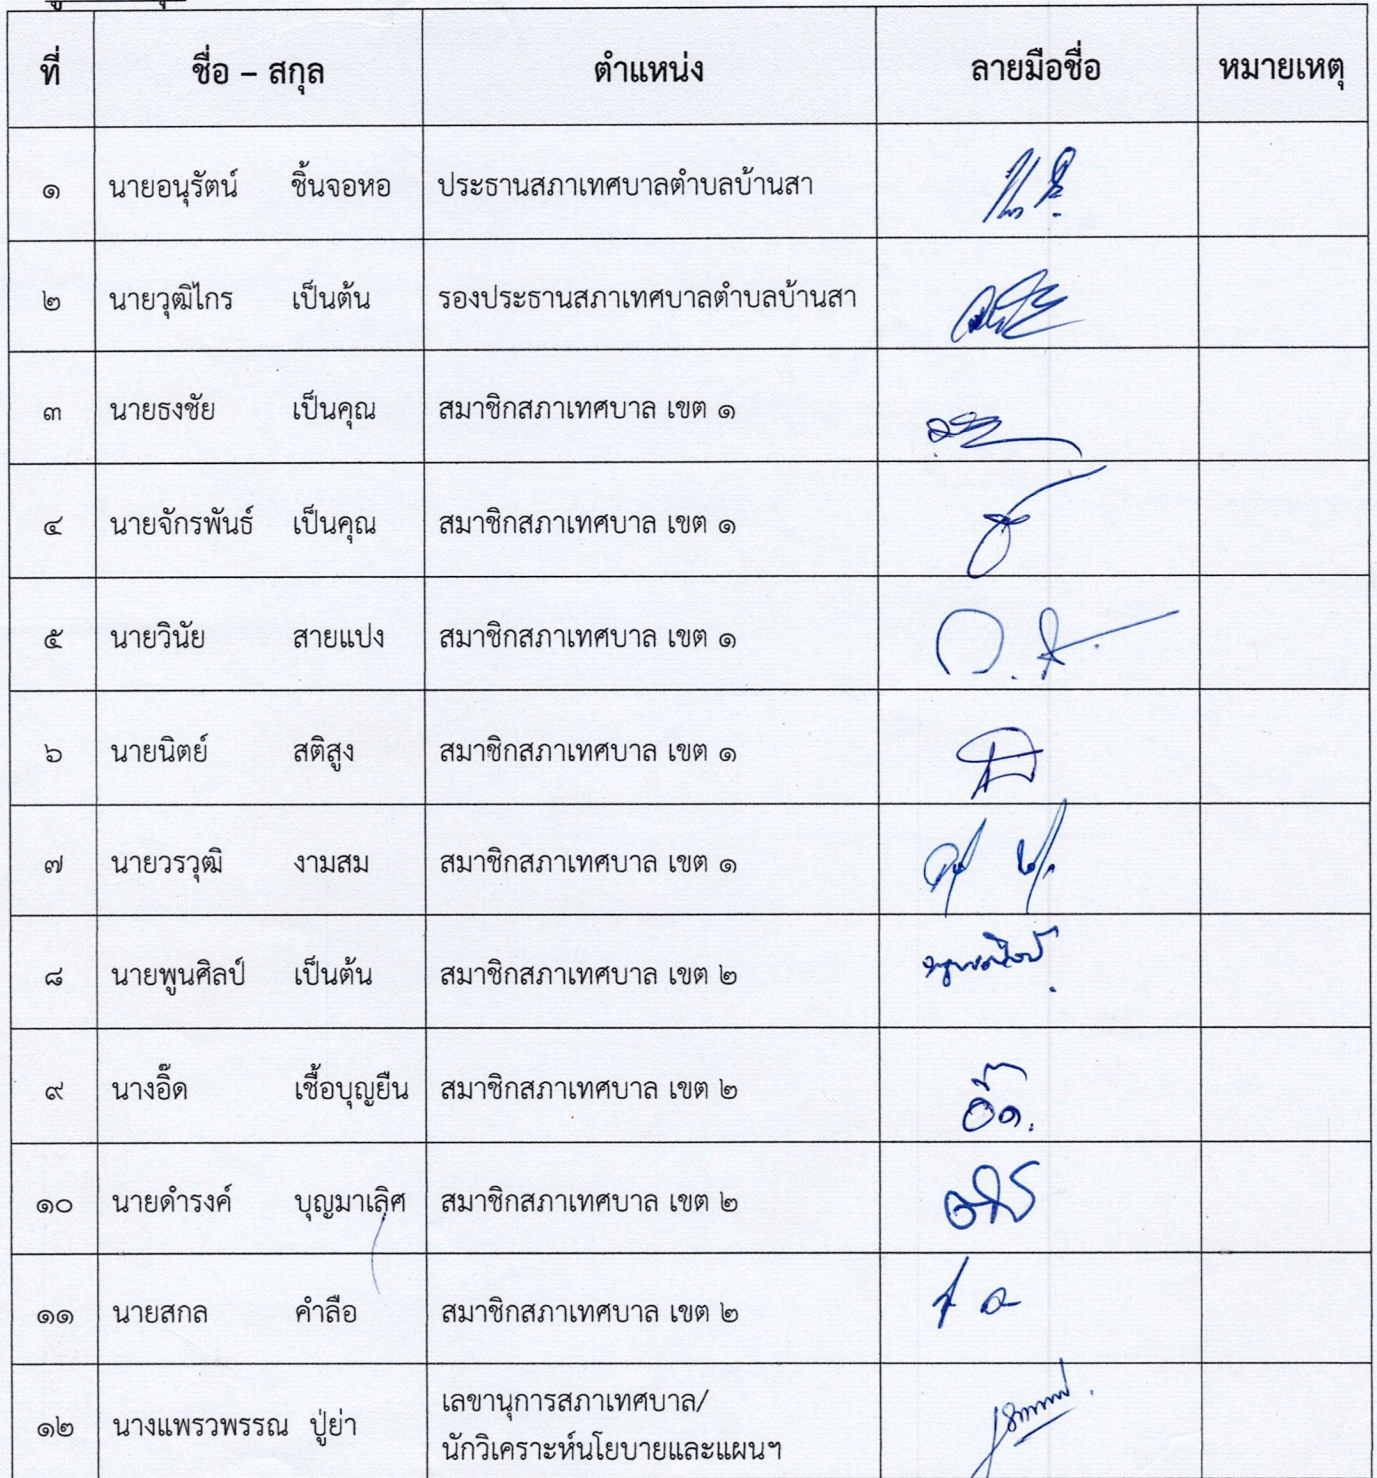 ที่ ชื่อ – สกุล ตำแหน่ง ลายมือชื่อ หมายเหตุ
๑ นายอนุรัตน์ ชิ้นจอหอ ประธานสภาเทศบาลตำบลบ้านสา
๒ นายวุฒิไกร เป็นต้น รองประธานสภาเทศบาลตำบลบ้านสา
๓ นายธงชัย เป็นคุณ สมาชิกสภาเทศบาล เขต ๑
๔ นายจักรพันธ์ เป็นคุณ สมาชิกสภาเทศบาล เขต ๑
๕ นายวินัย สายแปง สมาชิกสภาเทศบาล เขต ๑
๖ นายนิตย์ สติสูง สมาชิกสภาเทศบาล เขต ๑
๗ นายวรวุฒิ งามสม สมาชิกสภาเทศบาล เขต ๑
๘ นายพูนศิลป์ เป็นต้น สมาชิกสภาเทศบาล เขต ๒ พูนศิลป์
๙ นางอิ๊ด เชื้อบุญยืน สมาชิกสภาเทศบาล เขต ๒ อิ๊ด.
๑๐ นายดำรงค์ บุญมาเลิศ สมาชิกสภาเทศบาล เขต ๒
๑๑ นายสกล คำลือ สมาชิกสภาเทศบาล เขต ๒
๑๒ นางแพรวพรรณ ปู่ย่า เลขานุการสภาเทศบาล/
นักวิเคราะห์นโยบายและแผนฯ